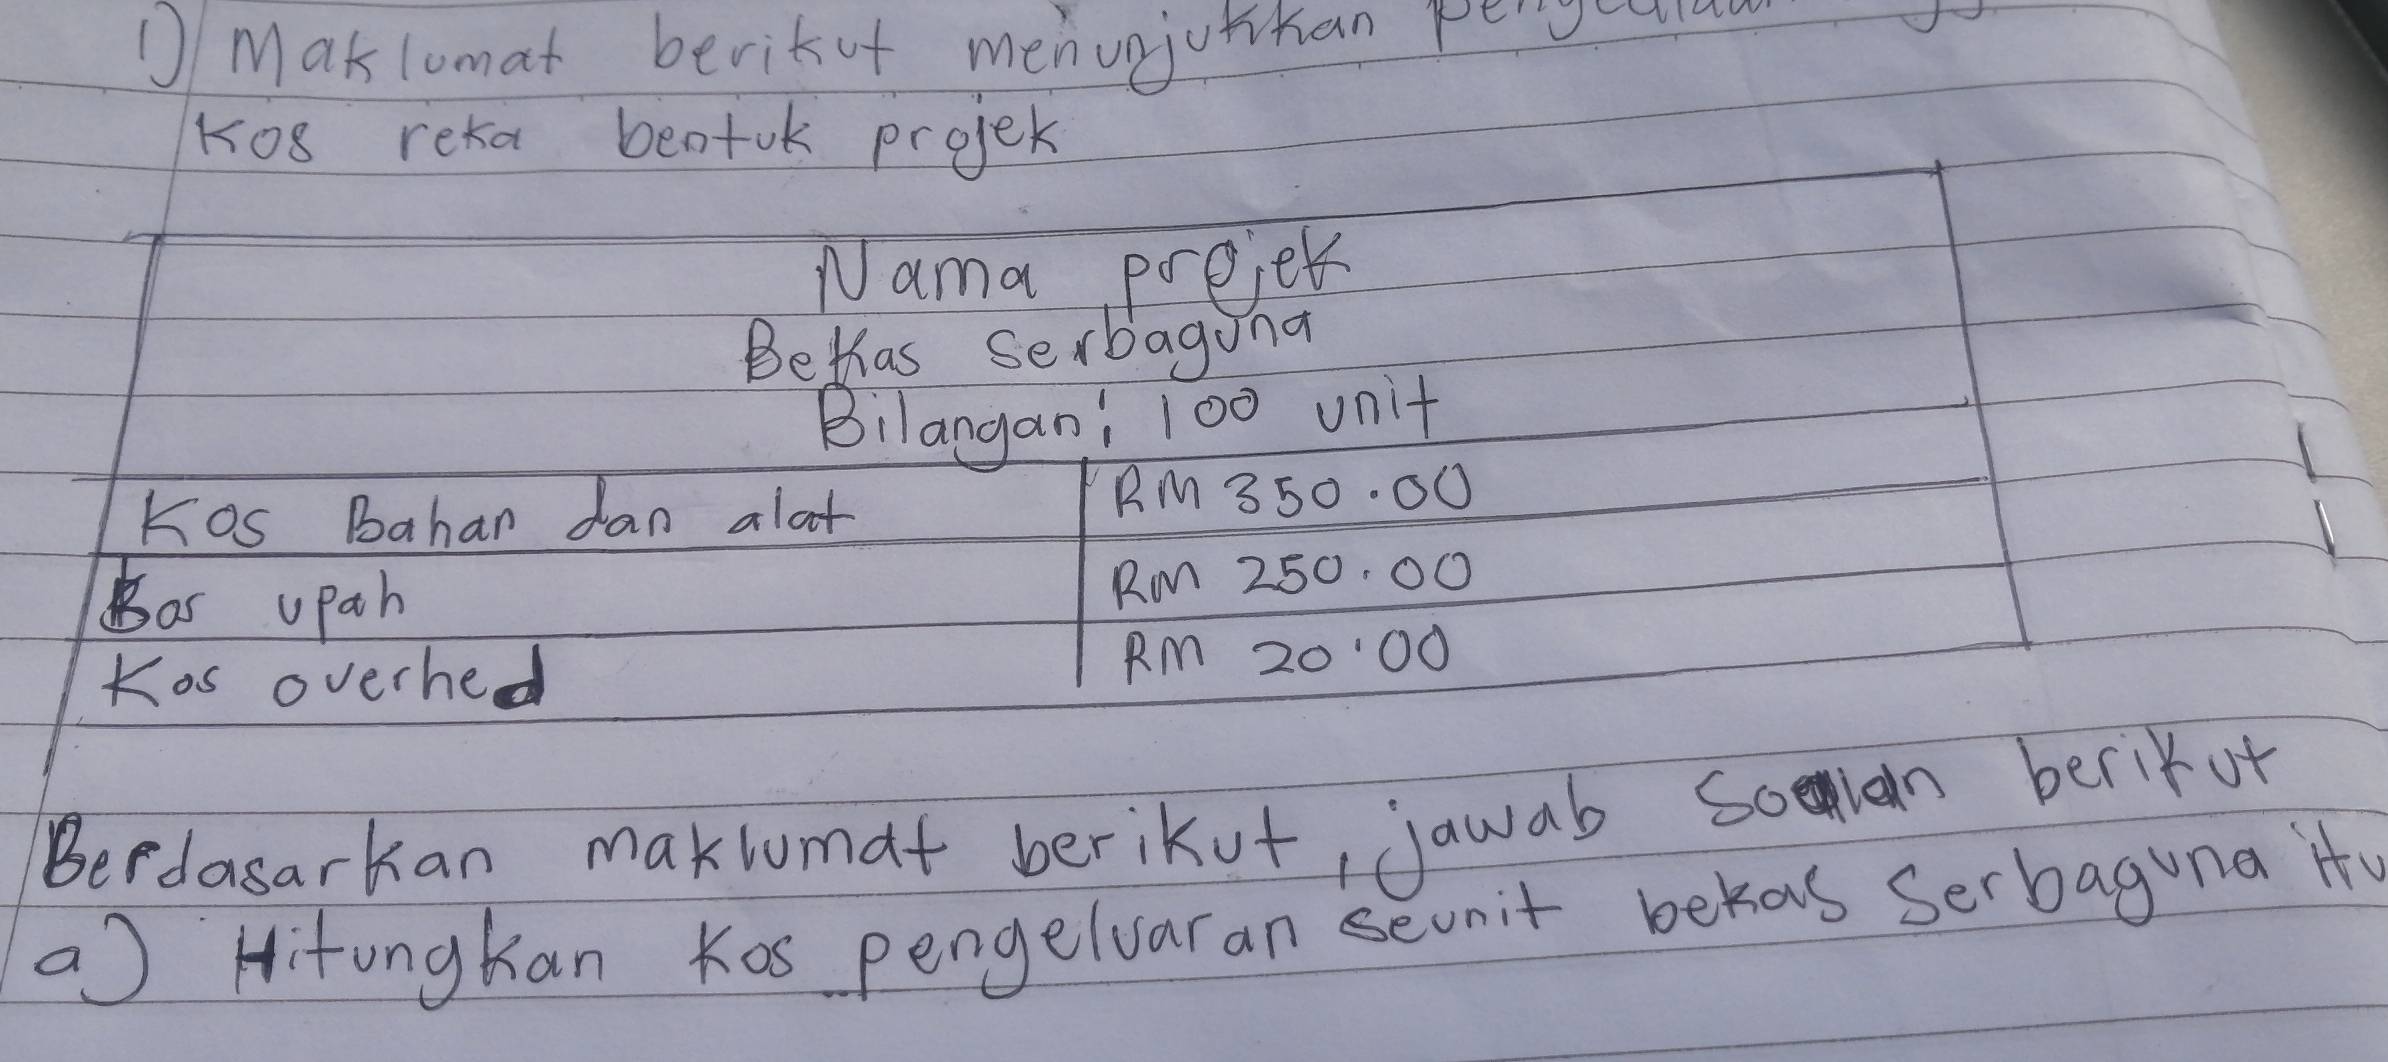 1) Maklumat berikut menunjukkan
Kos reka bentuk projek
Nama projek
Bekas serbaguna
Bilangan: 100 unit
Kos Bahan dan alat RM 350.00
Kos upah RM 250.00
Kos overhed RM 20.00
Berdasarkan maklumat berikut, jawab soalan berikut
a) Hitungkan kos pengeluaran seunit bekas serbaguna itu